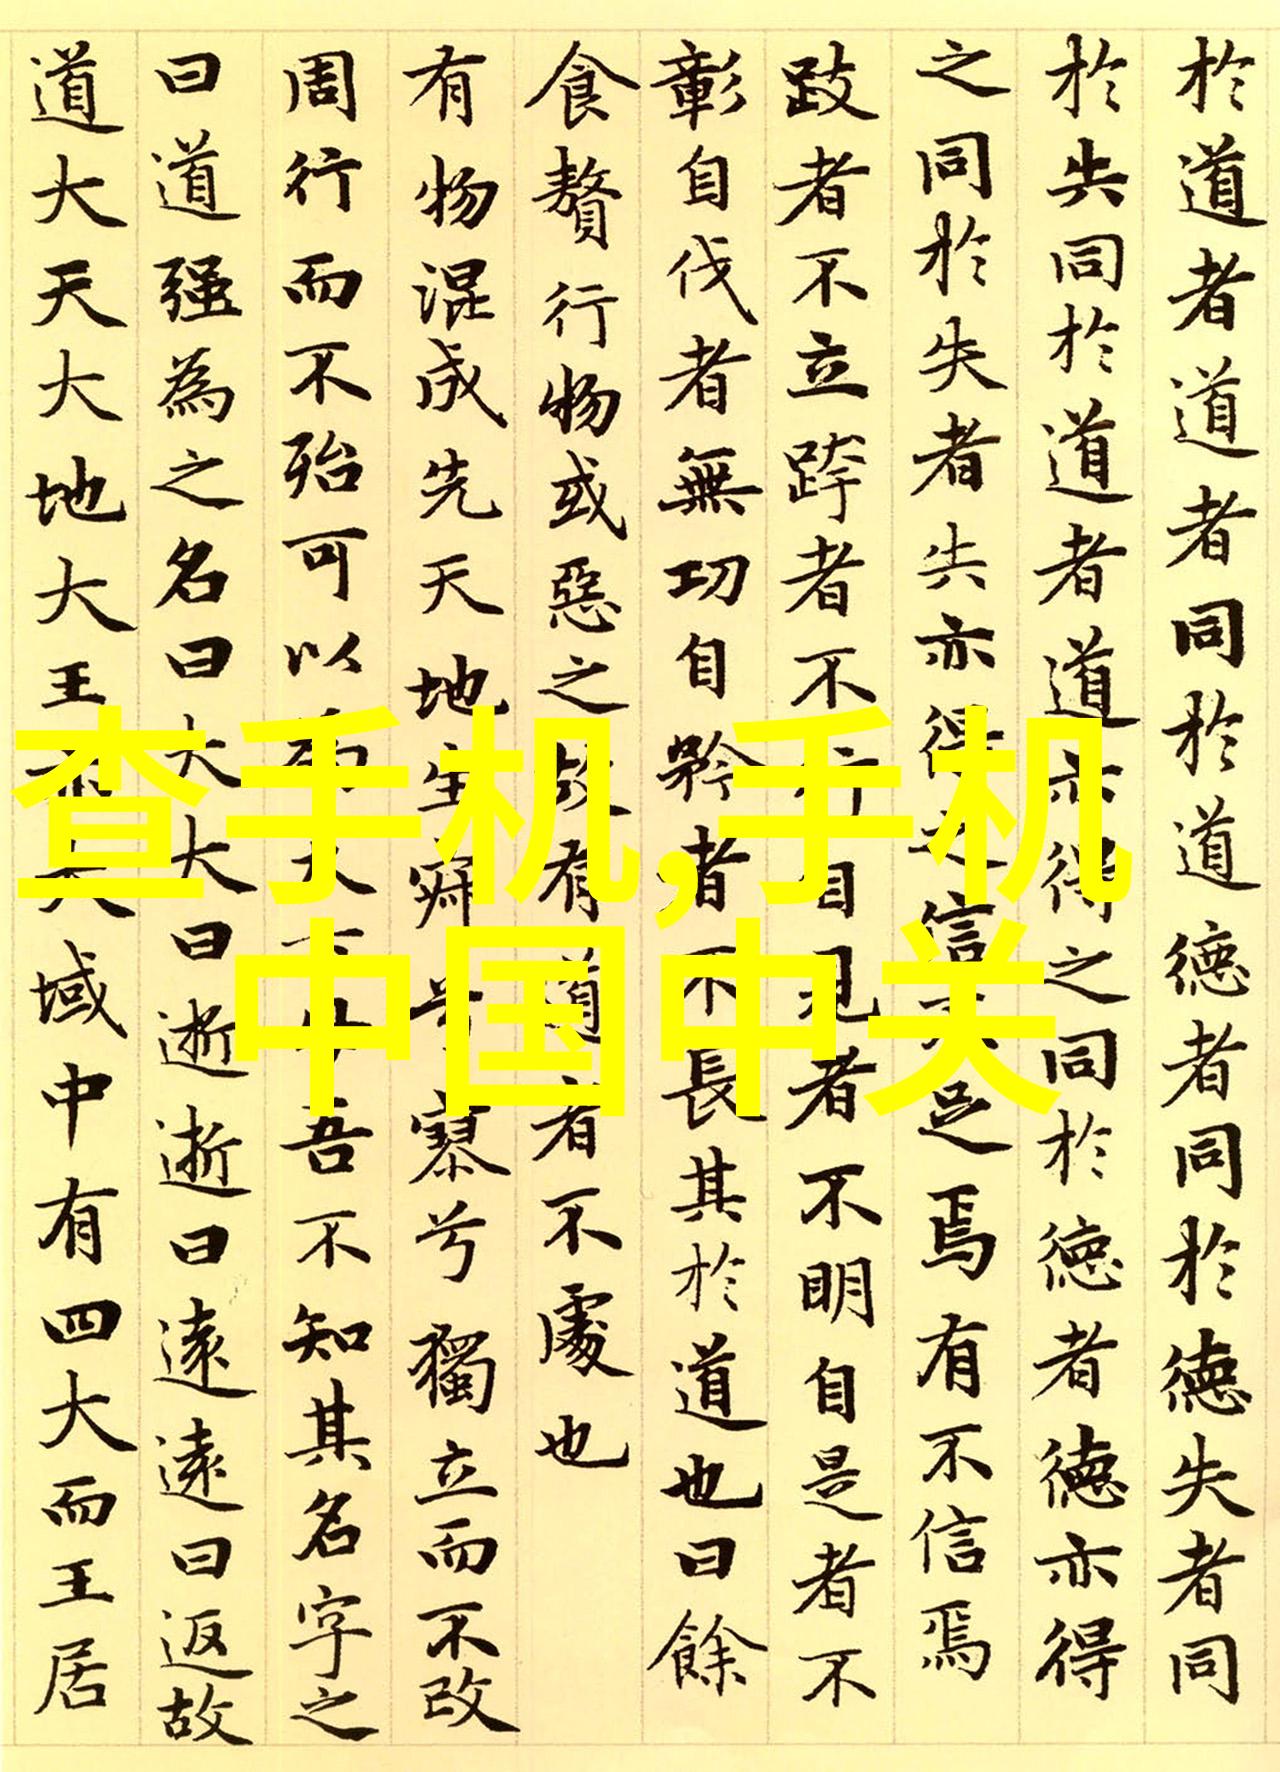 於道者道者同於道德者同於德失者同
於失同於道者道亦得之同於德者德亦得
之同於失者失亦得之信不足焉有不信焉
跂者不立跨者不行自見者不明自是者不
彰自伐者無功自矜者不長其於道也曰餘
食贅行物或惡之故有道者不處也
有物混成先天地生寂兮寥兮獨立而不改
周行而不殆可以為天下母吾不知其名字之
曰道强為之名曰大大曰逝逝曰遠遠曰返故
道大天大地大王亦大域中有四大而王居
查手机,手机
中国中关